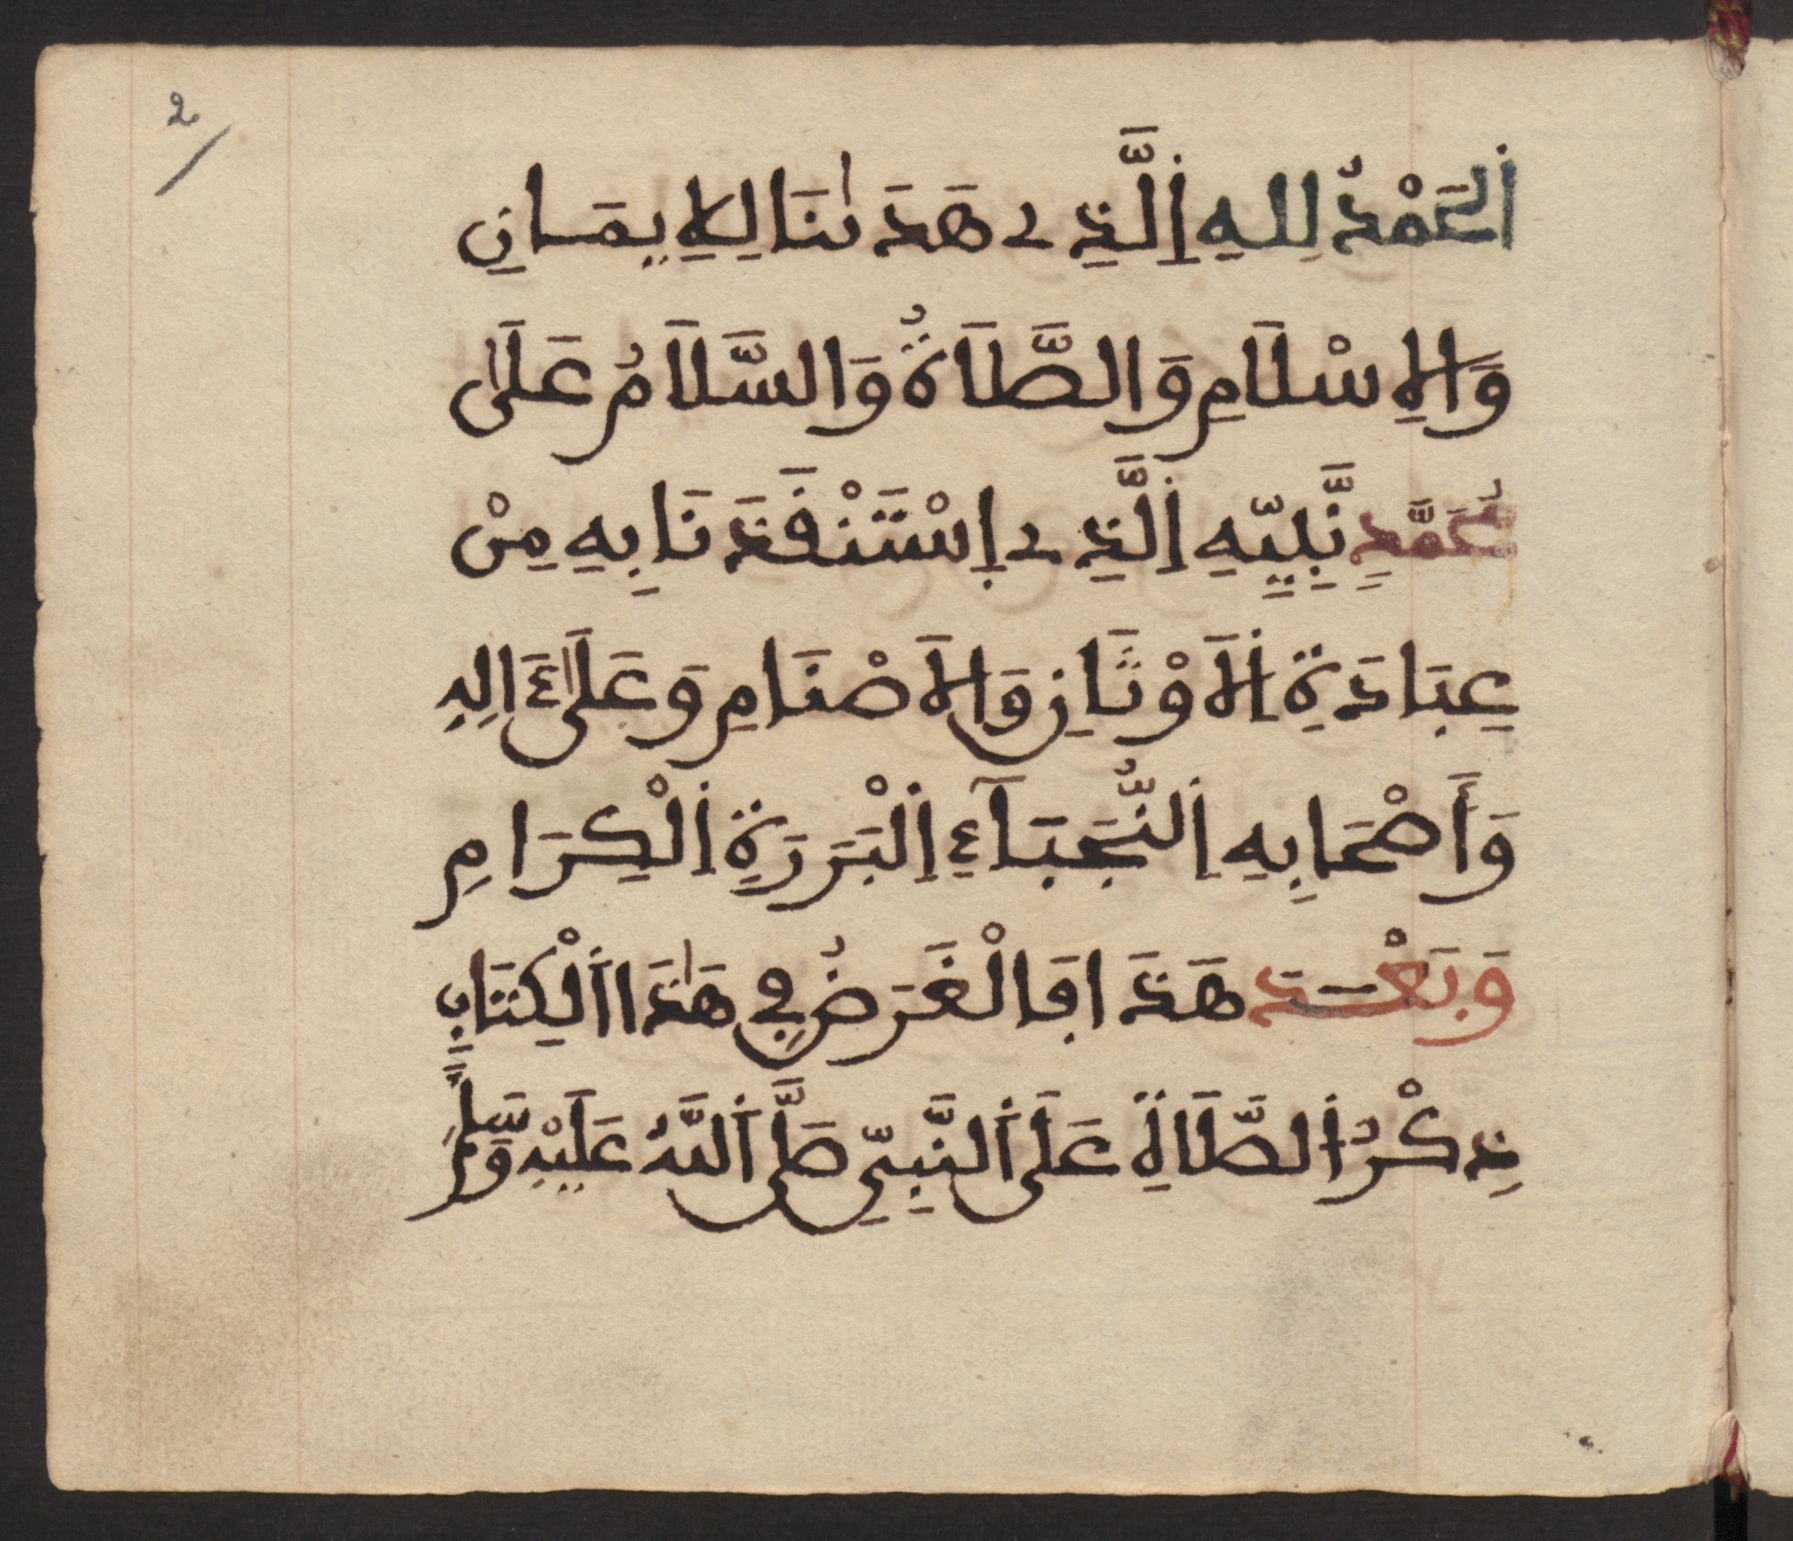 2
اَلْحَمْدُ لِلهِ اِلَّذِے هَدَىٰنَا لِلِايمَانِ
وَالِاسْلَامِ وَالصَّلَاةُ وَالسَّلَامُ عَلَىٰ
مُحَمَّدٍ نَّبِيِّهِ اِلَّذِے اِسْتَنْفَذَنَا بِهِ مِنْ
عِبَادَةِ اِلَاوْثَانِ وَالَاصْنَامِ وَعَلَىٰ ءَالِهِ
وَأَصْحَابِهِ اِلنُّجَبَآءِ اِلْبَرَرَةِ اِلْكِرَامِ
وَبَعْدَ هَذَا فَالْغَرَضُ فِي هَٰذَا اَلْكِتَابِ
ذِكْرُ اُلصَّلَاةِ عَلَى اَلنَّبِيِّ صَلَّى اَللَّهُ عَلَيْهِ وَسَلَّمَ